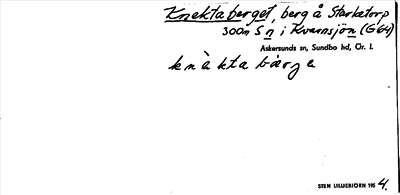 Knektaberget, berg å Starkatorp
300m S n i Kvarnsjön (G64)
Askersunds sn, Sundbo hd, Ör. l.
knàkta bärge
STEN LILLIEBJÖRN 195 4.